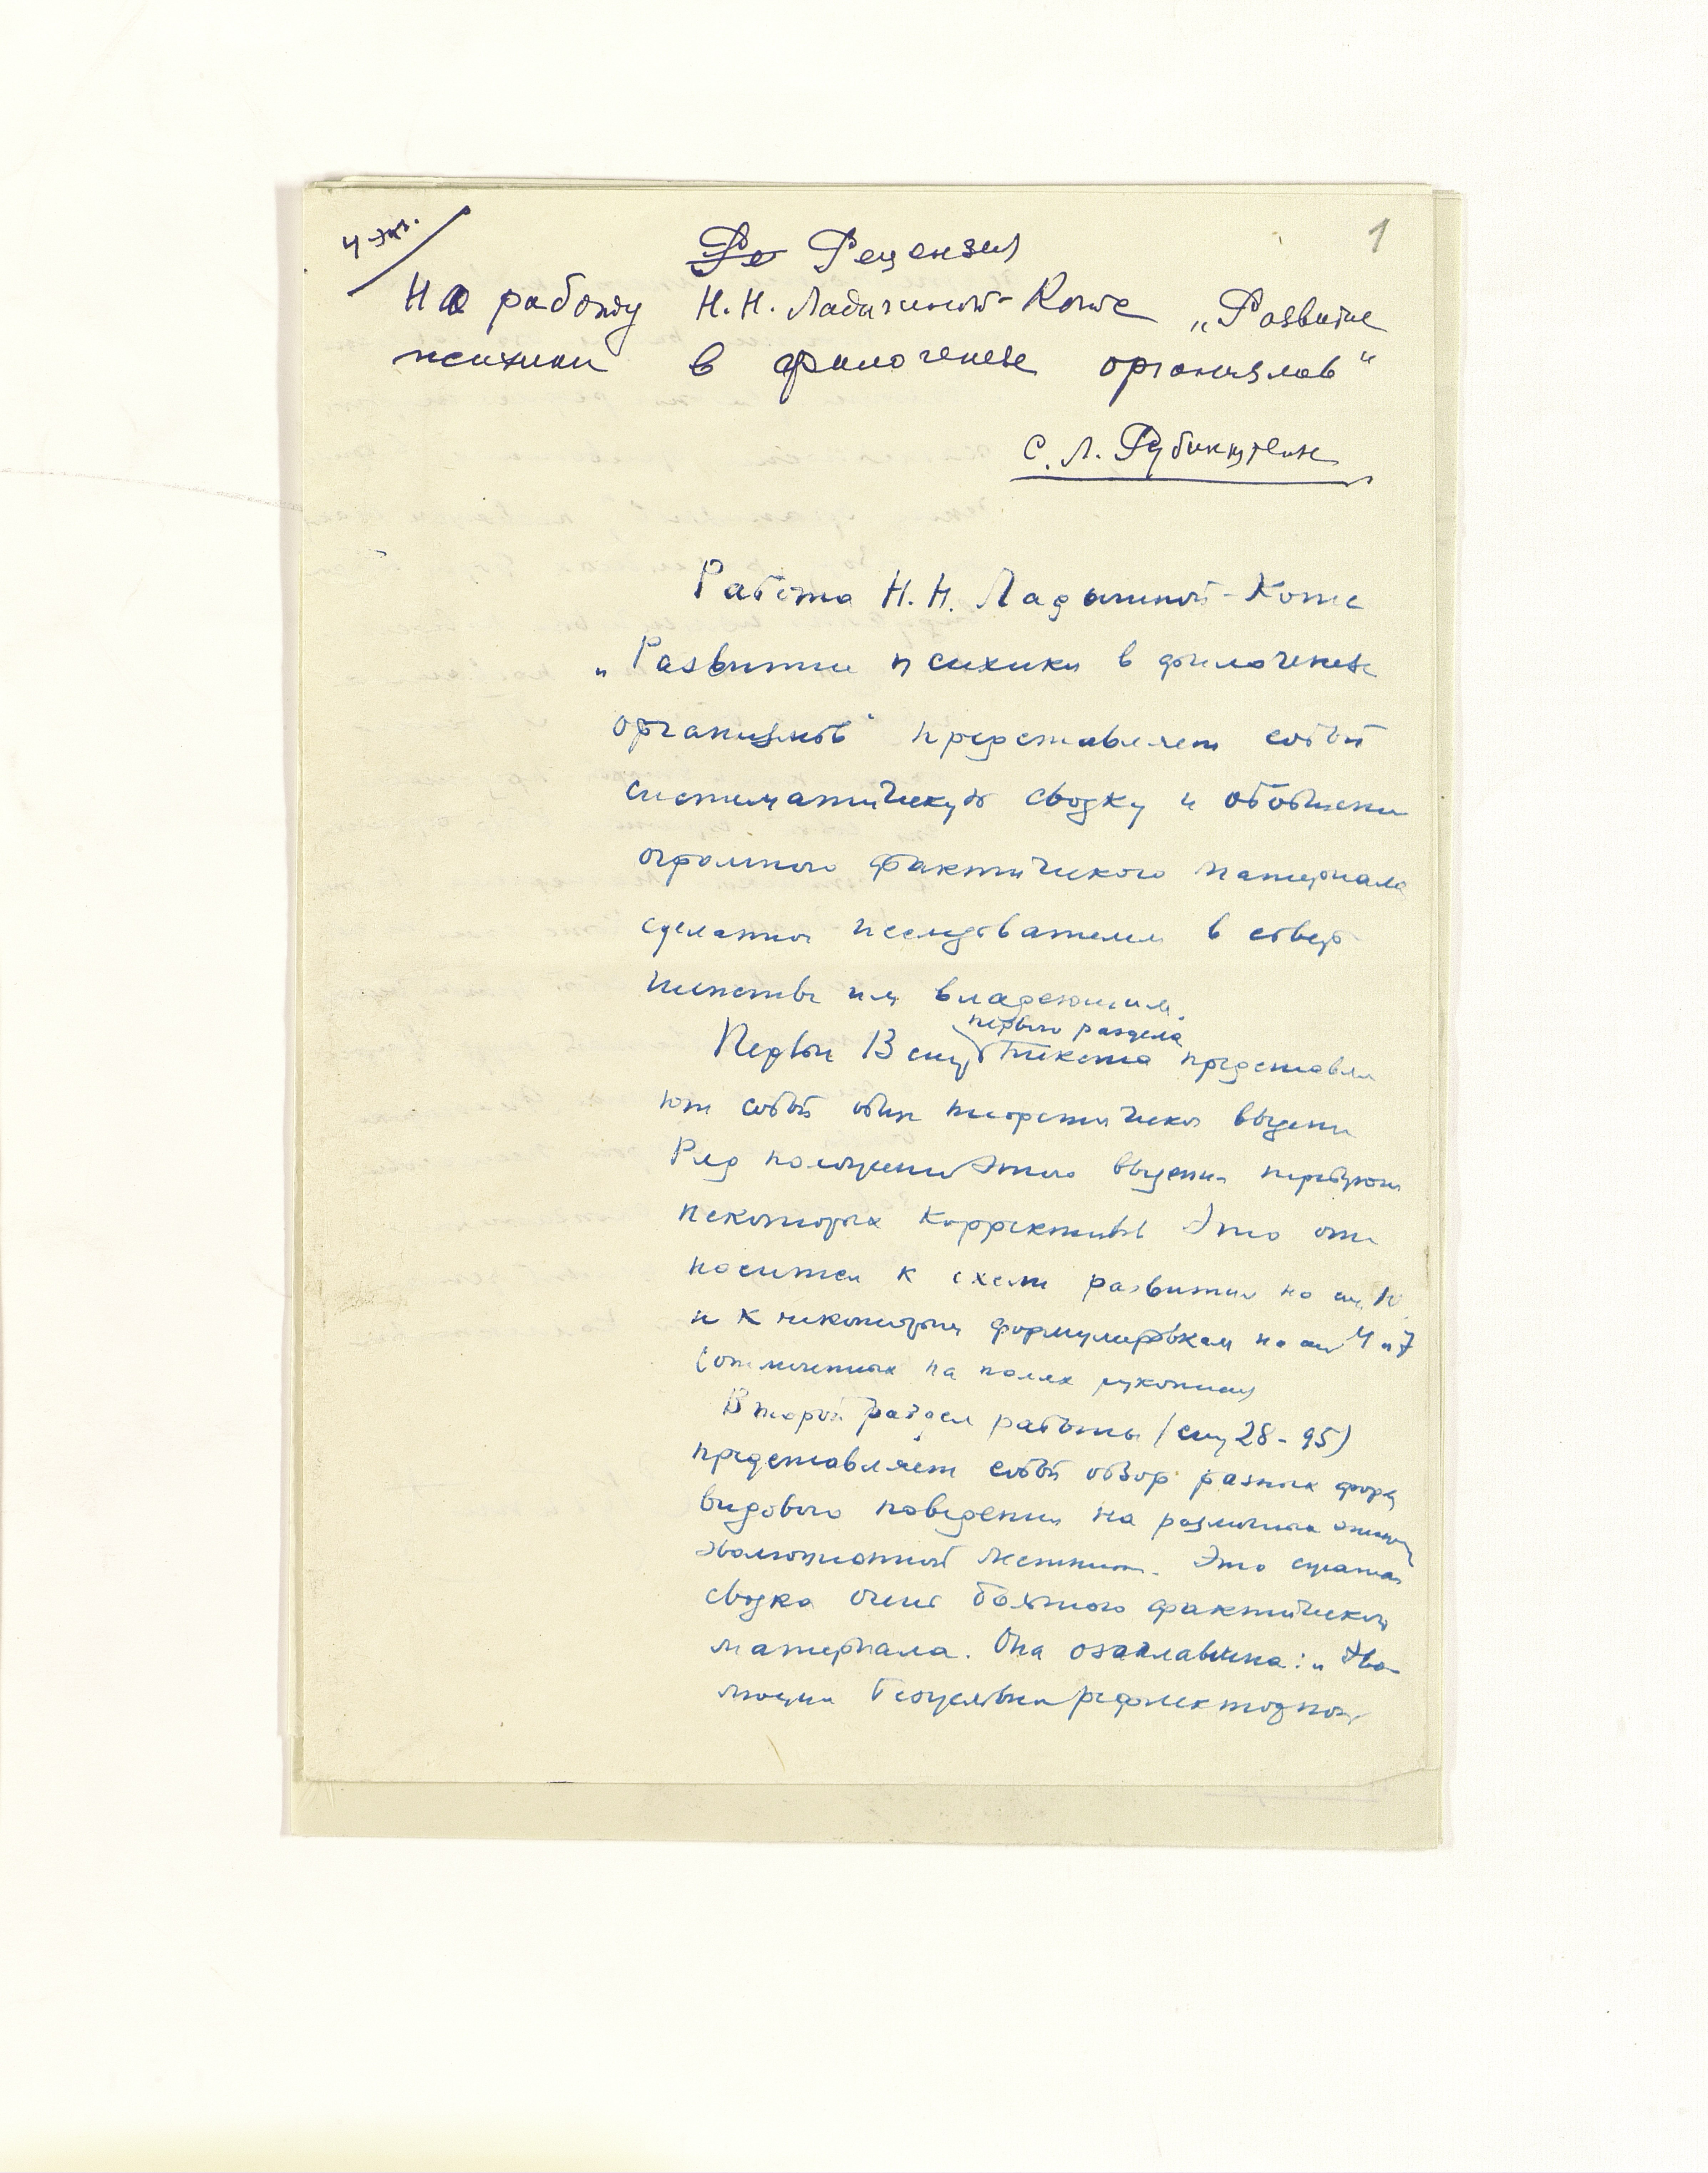 4 экз.
1
Ре Рецензия
На работу Н.Н. Ладыгиной-Котс „Развитие
психики в филогенезе организмов“
С. Л. Рубинштейн
Работа Н.Н. Ладыгиной-Котс
„Развитие психики в филогенезе
организмов“ представляет собой
систематическую сводку и обобщение
огромного фактического материала
сделанное исследователем в совер
шенстве им владеющим.
первого раздела
Первые 13 стр текста представля
ют собой общ теоретическое введение
Ряд положений этого введения требуют
некоторых коррективов Это от
носится к схеме развития на стр 10
и к некоторым формулировкам на стр 4 и 7
(отмеченных на полях рукописи)
Второй раздел работы (стр 28-95)
представляет собой обзор разных форм
видового поведения на различных этапах
эволюционной лестницы. Это
сводка очень большого фактического
материала. Она озаглавлена: „Эво-
люция безусловно рефлекторной